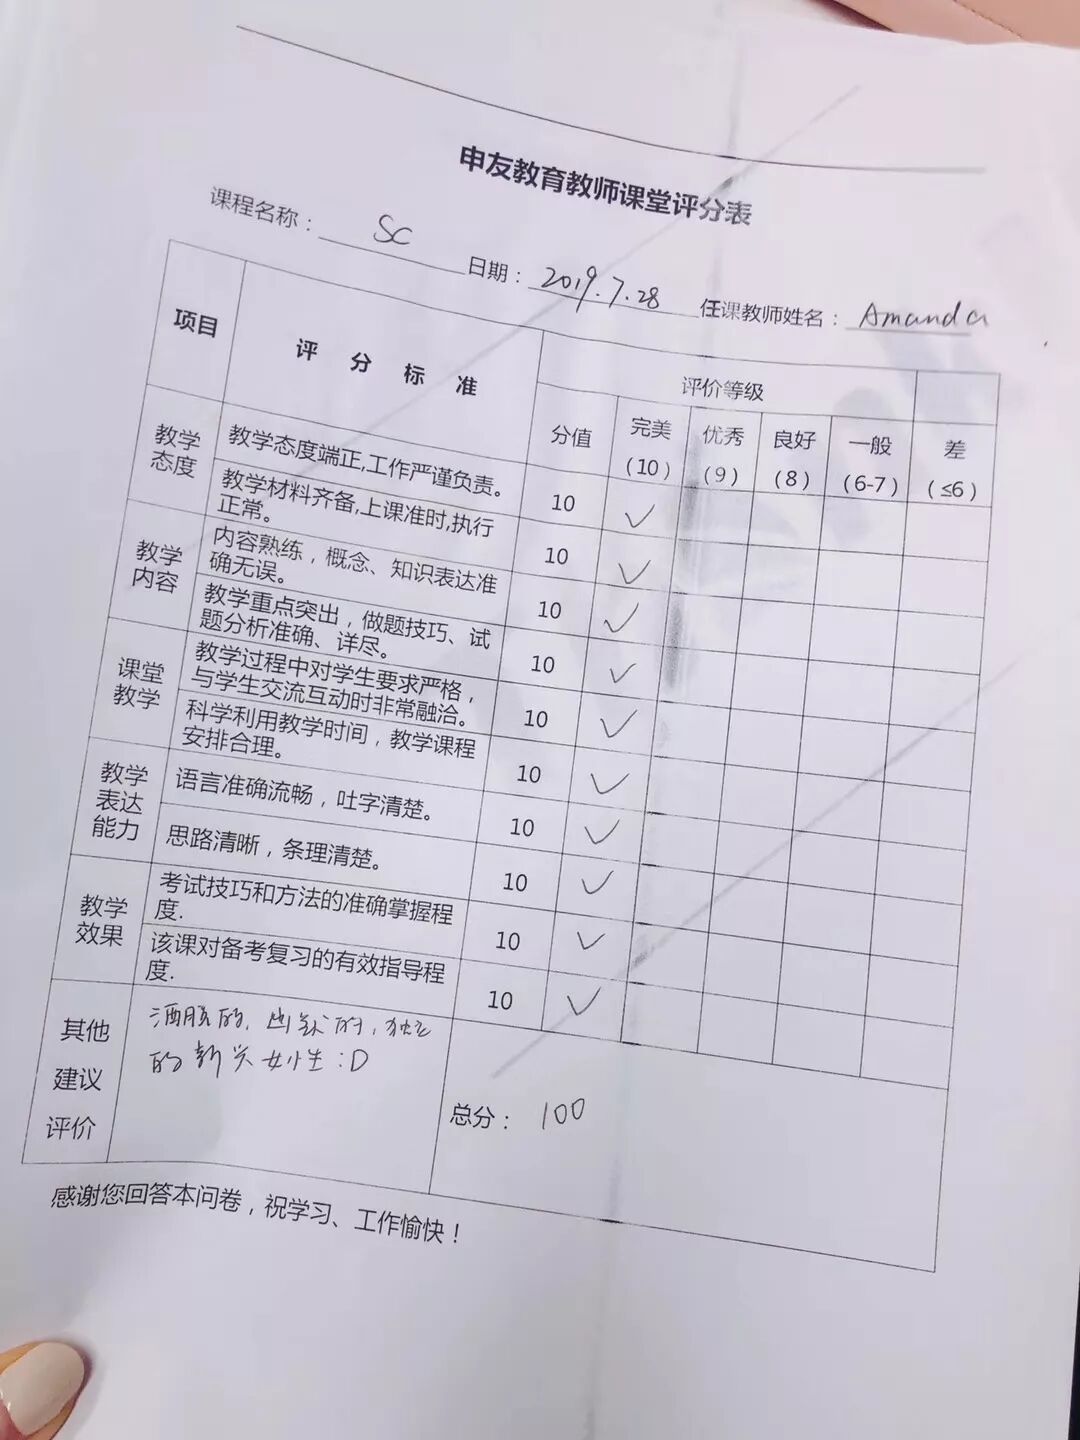 申友教育教师课堂评分表
课程名称： SC 日期：2019.7.28 任课教师姓名：Amanda
项目 评 分 标 准 评价等级
分值 完美 优秀 良好 一般 差
（10） （9） （8） （6-7） （≤6）
教学
态度
教学态度端正,工作严谨负责。 10 ✓
教学材料齐备,上课准时,执行
正常。 10 ✓
教学
内容
内容熟练，概念、知识表达准
确无误。 10 ✓
教学重点突出，做题技巧、试
题分析准确、详尽。 10 ✓
课堂
教学
教学过程中对学生要求严格，
与学生交流互动时非常融洽。 10 ✓
科学利用教学时间，教学课程
安排合理。 10 ✓
教学
表达
能力
语言准确流畅，吐字清楚。 10 ✓
思路清晰，条理清楚。 10 ✓
教学
效果
考试技巧和方法的准确掌握程
度. 10 ✓
该课对备考复习的有效指导程
度. 10 ✓
其他
建议
评价
洒脱的，幽默的，独立
的新兴女性：D
总分： 100
感谢您回答本问卷，祝学习、工作愉快！